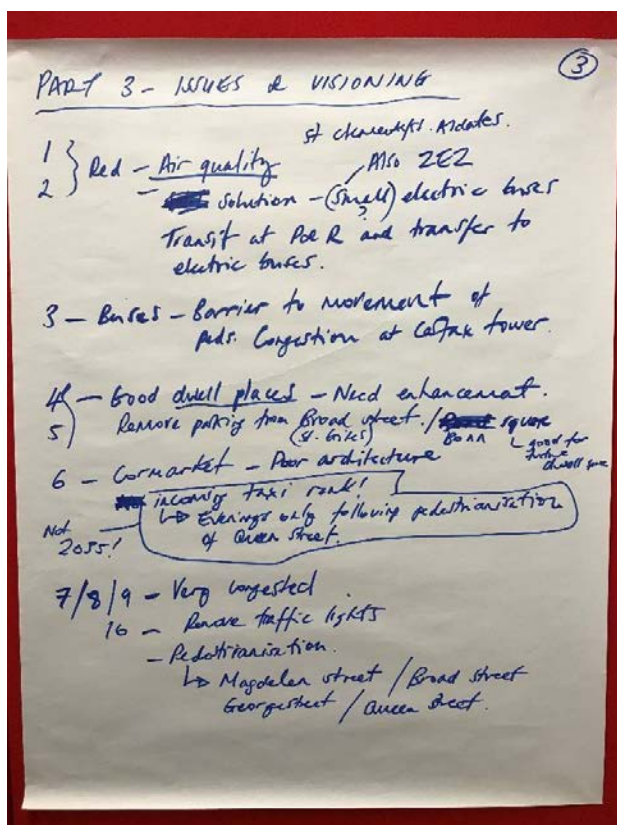 3
PART 3 - ISSUES & VISIONING
St Clements/St. Aldates.
1 } Red - Air quality
Also ZEZ
2 solution - (small) electric buses
?
Transit at P&R and transfer to
electric buses.
3 - Buses - Barrier to movement of
peds. Congestion at Carfax tower.
4 - Good dwell places - Need enhancement.
5 Remove parking from Broad street. / square
(St. Giles) Bonn
good for
future
dwell
6 - Cornmarket - Poor architecture
incoming taxi rank!
Evenings only following pedestrianisation
of Queen street.
Not
2055!
7/8/9 - Very congested
16 - Remove traffic lights
- Pedestrianisation.
Magdalen street / Broad street
George street / Queen street.